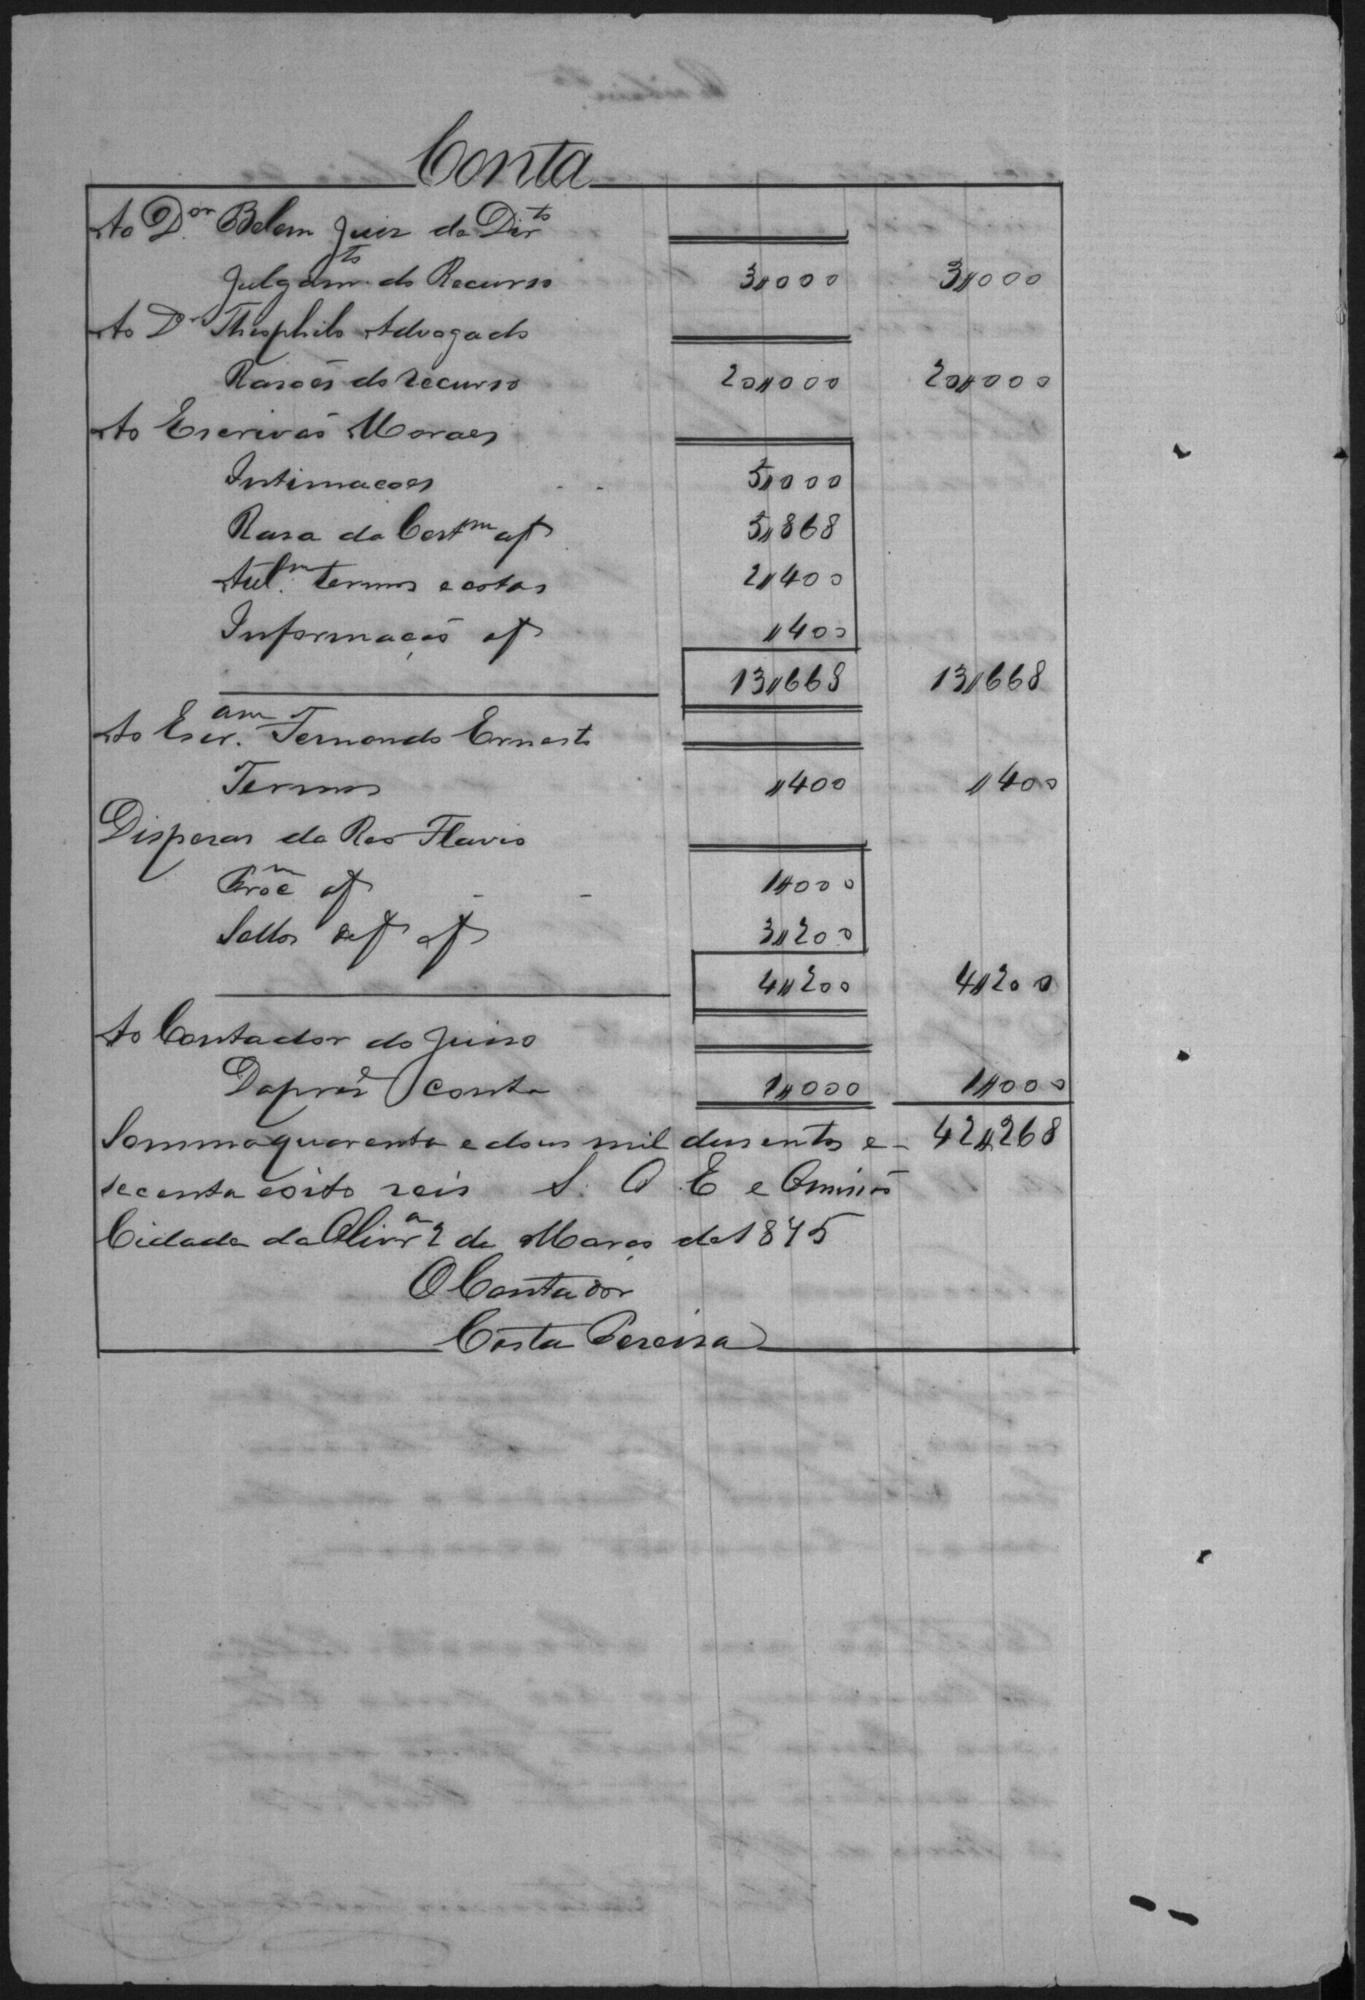 Conta
Ao D.or Belem Juiz de Dir.to
Julgam.to do Recurso 3,,000 3,,000
Ao Dr Theophilo Advogado
Rasoẽs do recurso 20,,000 20,,000
Ao Escrivaõ Moraes
Intimacoes 5,,000
Rasa da Cert.m af 5,,868
Aut.m termos e cotas 2,,400
Informaçaõ af ,,400
13,,668 13,,668
Ao Escr.am Fernando Ernesto
Termos ,,400 ,,400
Dispesas do Reo Flavio
Proc.m af 1,,000
Sellos af 3,,200
4,,200 4,,200
Ao Contador do Juiso
conta 1,,000 1,,000
Somma quarenta e dous mil dusentos e 42,,268
secenta e oito reis S. O. E e Omissaõ
Cidade da Oliv.a 2 de Março de 1875
O Contador
Costa Pereira